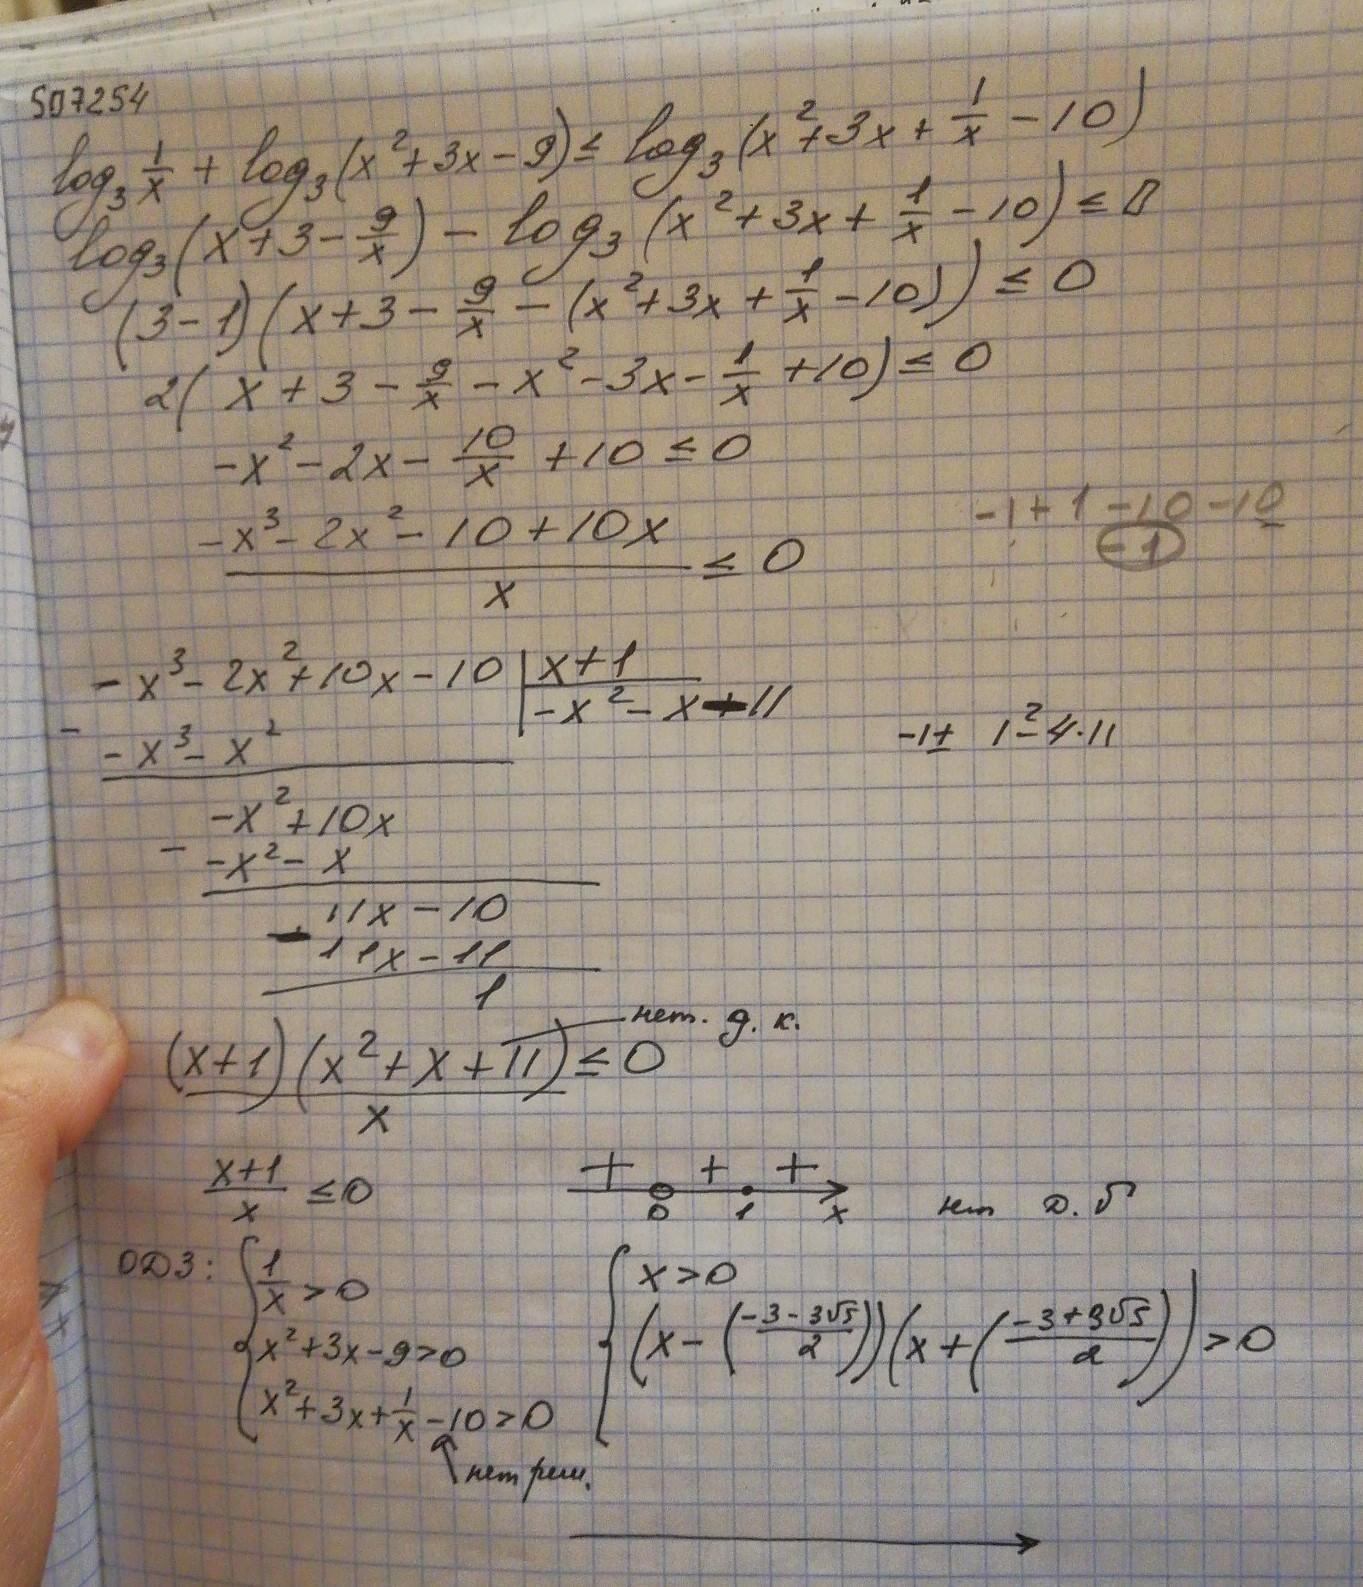 507254
log₃ 1/x + log₃(x² + 3x - 9) ≤ log₃(x² + 3x + 1/x - 10)
log₃(x + 3 - 9/x) - log₃(x² + 3x + 1/x - 10) ≤ 0
(3 - 1)(x + 3 - 9/x - (x² + 3x + 1/x - 10)) ≤ 0
2(x + 3 - 9/x - x² - 3x - 1/x + 10) ≤ 0
-x² - 2x - 10/x + 10 ≤ 0
-1 + 1 - 10 - 10
-1
(-x³ - 2x² - 10 + 10x)/x ≤ 0
-x³ - 2x² + 10x - 10 | x + 1
-x² - x + 11
- -x³ - x²
-1 ± 1² - 4·11
-x² + 10x
- -x² - x
11x - 10
- 11x - 11
1
нет. д. к.
(x + 1)(x² + x + 11)/x ≤ 0
(x + 1)/x ≤ 0
+ + +
0 1 x
д. б
ОДЗ: { 1/x > 0
x² + 3x - 9 > 0
x² + 3x + 1/x - 10 > 0
нет реш.
{ x > 0
(x - ((-3 - 3√5)/2))(x + ((-3 + 3√5)/2)) > 0